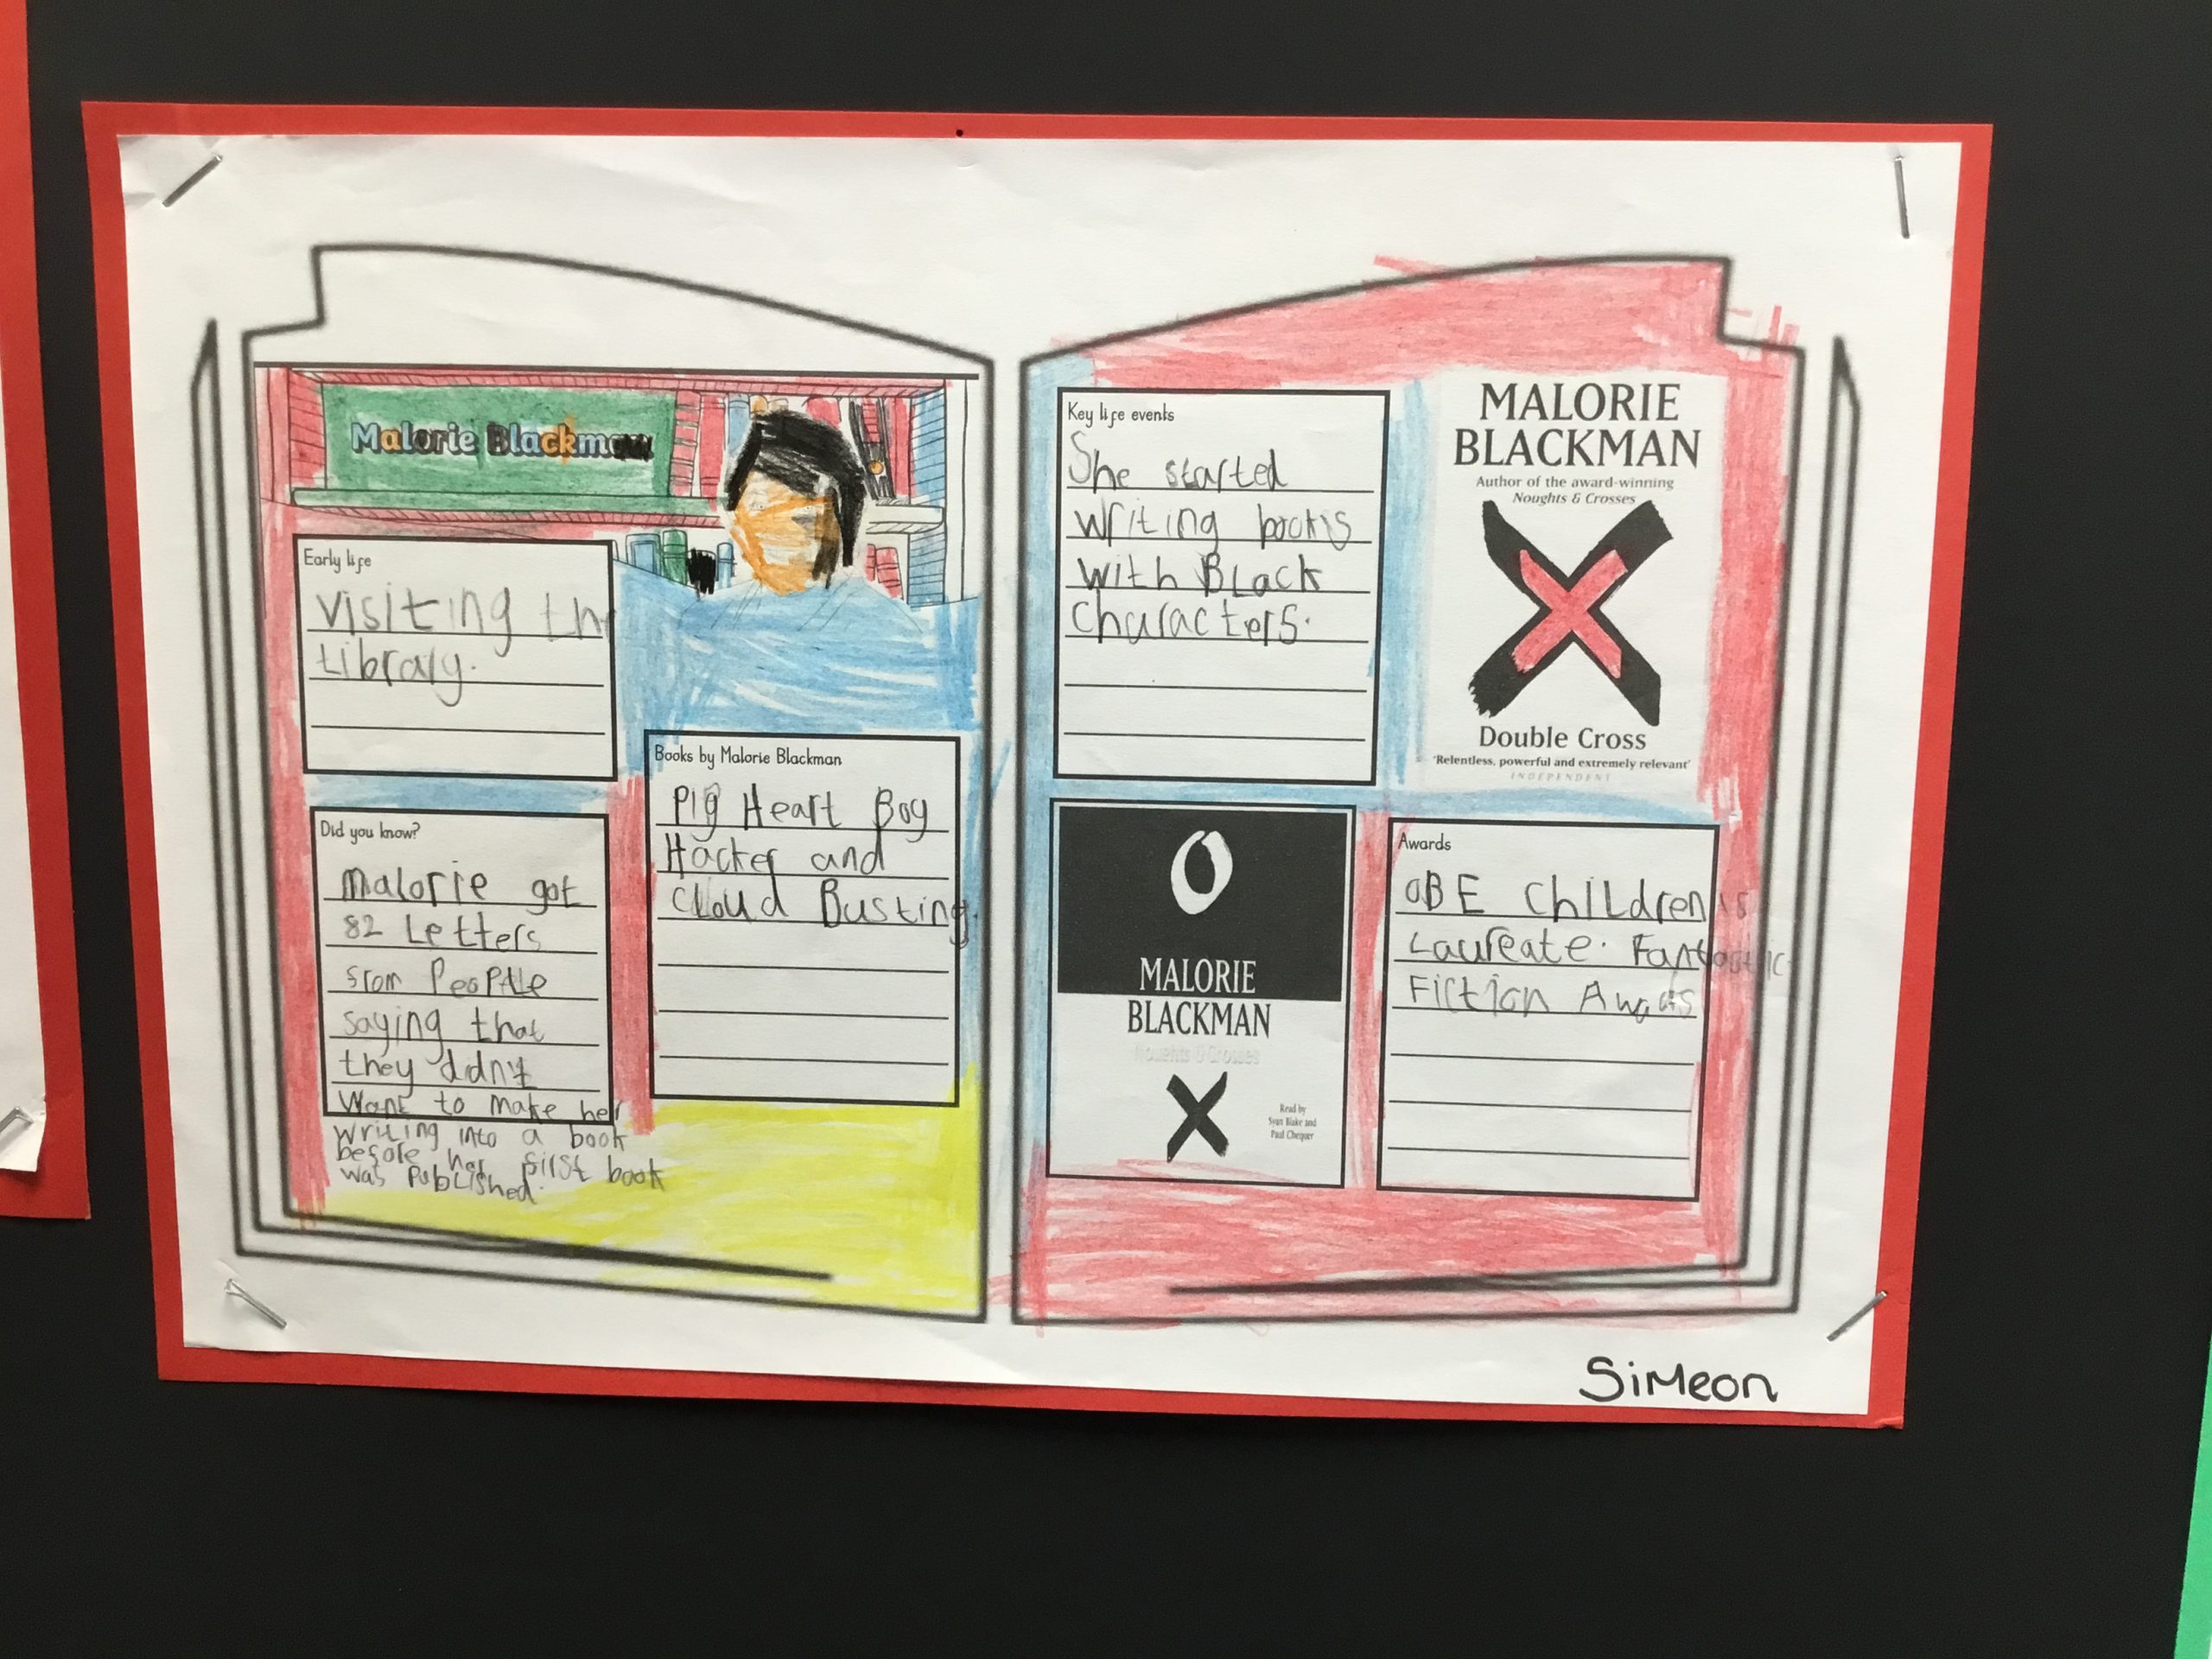 Malorie Blackman
Early life
Visiting the
Library.
Did you know?
Malorie got
82 Letters
from People
saying that
they didn't
Want to make her
writing into a book
before her first book
was Published.
Books by Malorie Blackman
Pig Heart Boy
Hacker and
Cloud Busting.
Key life events
She started
Writing books
with Black
Characters.
MALORIE
BLACKMAN
Author of the award-winning
Noughts & Crosses
Double Cross
'Relentless, powerful and extremely relevant'
INDEPENDENT
O
MALORIE
BLACKMAN
Noughts & Crosses
X
Read by
Syan Blake and
Paul Chequer
Awards
OBE Children's
Laureate. Fantastic
Fiction
Simeon